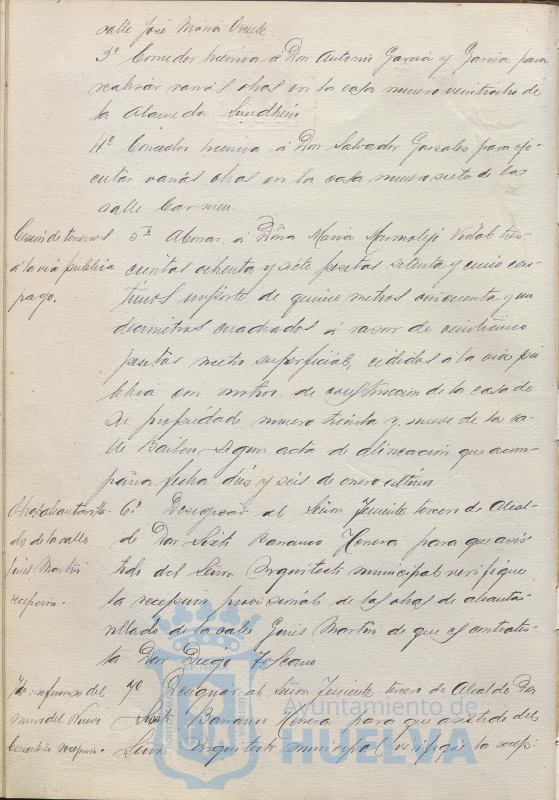 calle José María Orense
3º Conceder licencia á Don Antonio García y García para
realizar varias obras en la casa número veinticuatro de
la Alameda Sundheim
4º Conceder licencia á Don Salvador Gonzalez para eje-
cutar varias obras en la casa número siete de la
calle Carmen.
Cesión de terrenos
á la vía pública
pago.
5º Abonar á Doña María Marmolejo Vidal tres-
cientas ochenta y siete pesetas setenta y cinco cen-
timos importe de quince metros cincuenta y un
decimetros cuadrados á razon de veinticinco
pesetas metro superficial, cedidos á la vía pú
blica con motivo de construccion de la casa de
su propiedad número treinta y nueve de la ca-
lle Bailen segun acta de alineacion que acom-
paña fecha diez y seis de enero último
Obras alcantarilla-
do de la calle
Ginés Martín
recepcion.
6º Designar al Señor Teniente tercero de Alcal-
de Don Sixto Barranco Herrera para que asis-
tido del Señor Arquitecto municipal verifique
la recepcion provisional de las obras de alcanta-
rillado de la calle Ginés Martín de que es contratis-
ta Don Diego Toscano
Id. refuerzo del
muro del Nuevo
Cementerio recepcion.
7º Designar al Señor Teniente tercero de Alcalde Don
Sixto Barranco Herrera para que asistido del
Señor Arquitecto municipal verifique la recep-
Ayuntamiento de
HUELVA